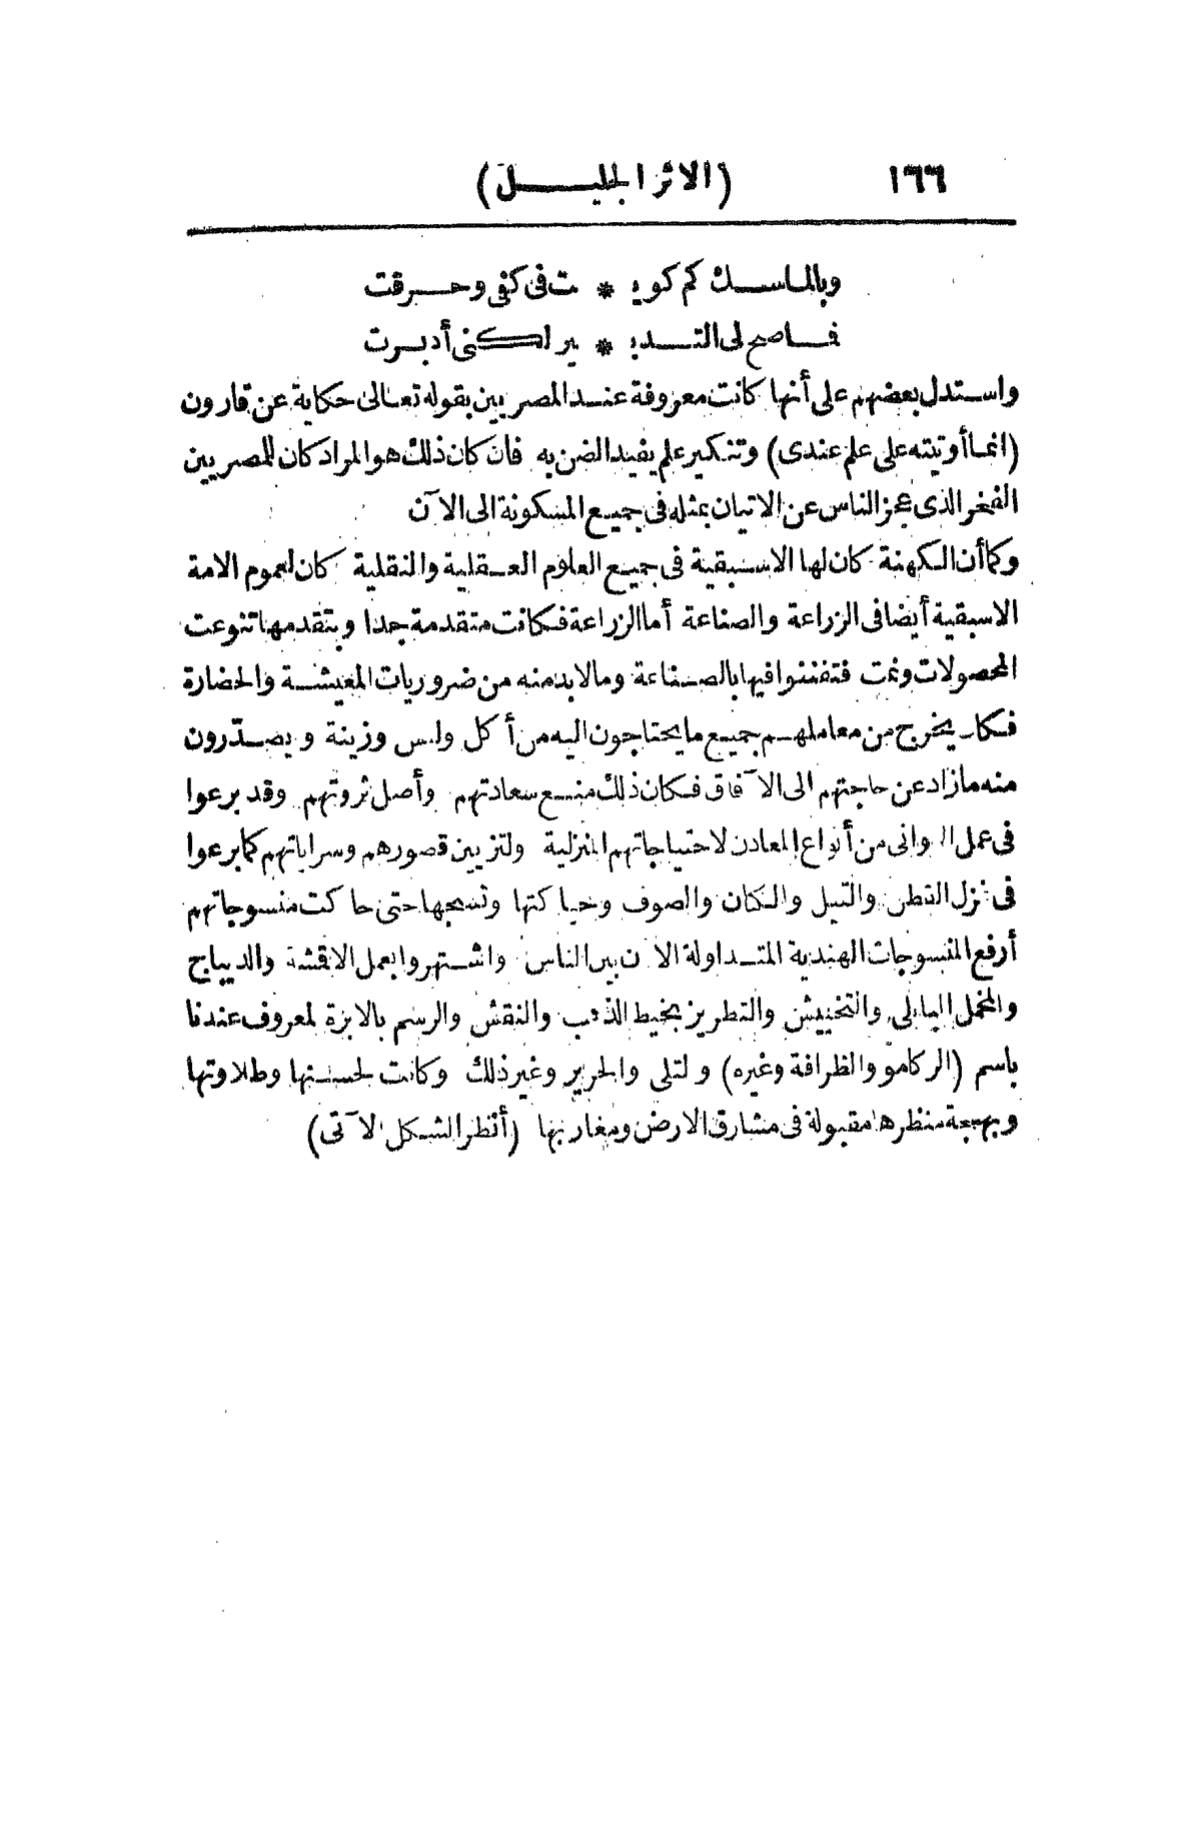 ١٦٦ (الاثر الجليل)
وبالماسك كم كويـ * ـت فى كفى وحرقت
فاصح لى التدبـ * ـير لكنى أدبرت
واستدل بعضهم على أنها كانت معروفة عند المصريين بقوله تعالى حكاية عن قارون
(انما أوتيته على علم عندى) وتنكير علم يفيد الضن به فان كان ذلك هو المراد كان للمصريين
الفخر الذى عجز الناس عن الاتيان بمثله فى جميع المسكونة الى الآن
وكما أن الكهنة كان لها الاسبقية فى جميع العلوم العقلية والنقلية كان لعموم الامة
الاسبقية أيضا فى الزراعة والصناعة أما الزراعة فكانت متقدمة جدا وبتقدمها تنوعت
المحصولات ونمت فتفننوا فيها بالصناعة ومالابد منه من ضروريات المعيشة والحضارة
فكان يخرج من معاملهم جميع ما يحتاجون اليه من أكل ولبس وزينة ويصدّرون
منه مازاد عن حاجتهم الى الآفاق فكان ذلك منبع سعادتهم وأصل ثروتهم وقد برعوا
فى عمل الاوانى من أنواع المعادن لاحتياجاتهم المنزلية ولتزيين قصورهم وسراياتهم كما برعوا
فى غزل القطن والتيل والكتان والصوف وحياكتها ونسجها حتى حاكت منسوجاتهم
أرفع المنسوجات الهندية المتداولة الآن بين الناس واشتهروا بعمل الاقمشة والديباج
والمخمل البابلى والتخييش والتطريز بخيط الذهب والنقش والرسم بالابرة المعروف عندنا
باسم (الركامو والظرافة وغيره) والتلى والحرير وغير ذلك وكانت لحسنها وطلاوتها
وبهجة منظرها مقبولة فى مشارق الارض ومغاربها (أنظر الشكل الآتى)